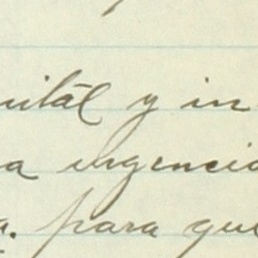 uitál y in
a urgencia
a. para que